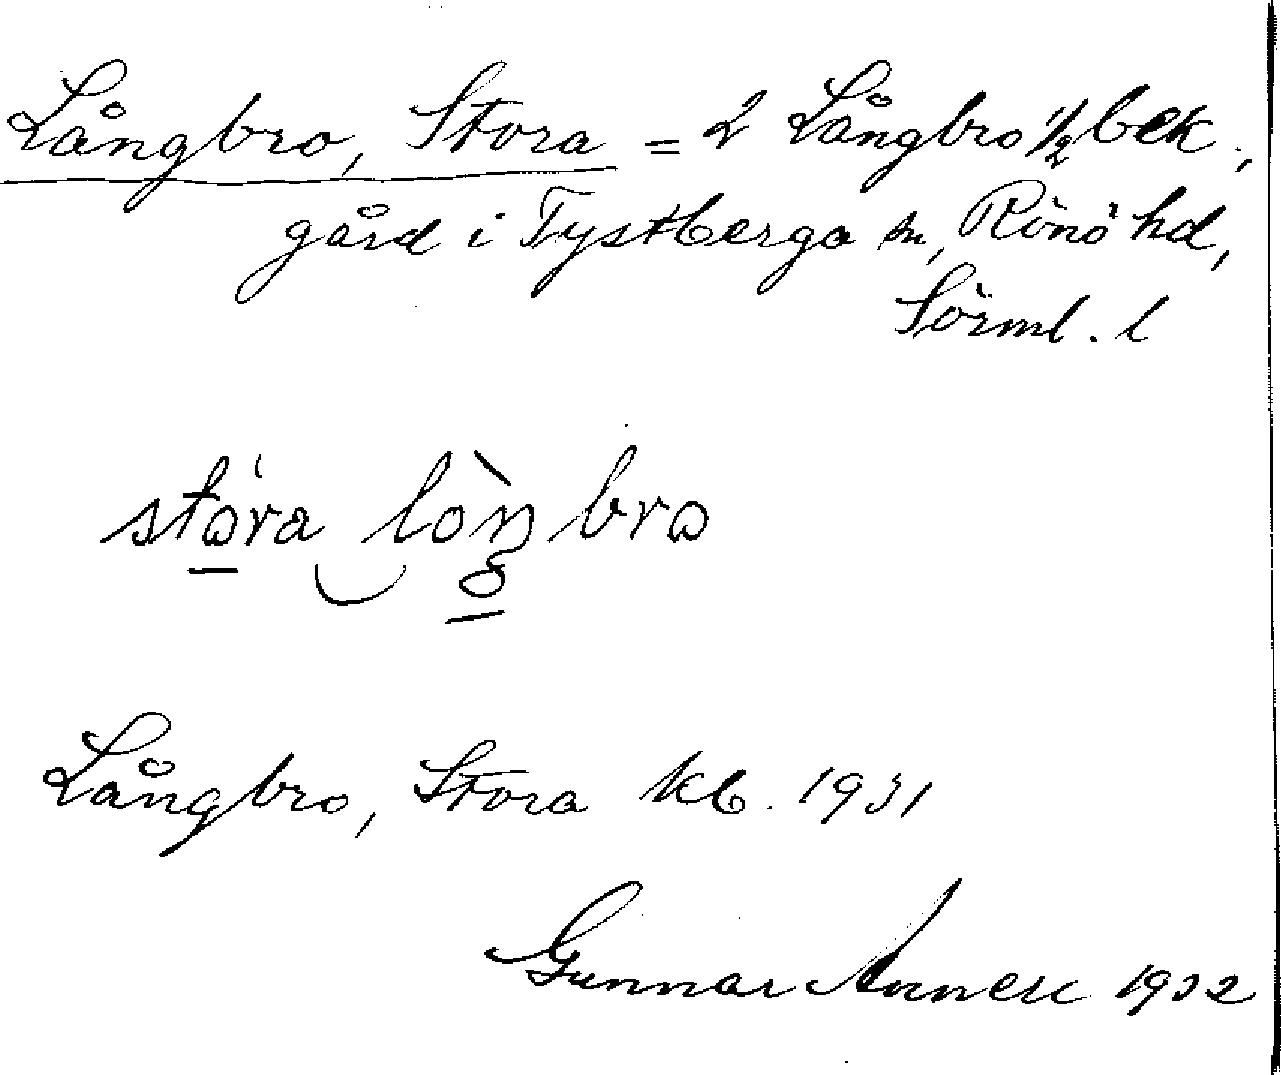 Långbro, Stora = 2 Långbro 1/2 bek.,
gård i Tystberga sn, Rönö hd,
Sörml. l
Långbro, Stora kb. 1931
Gunnar 1932